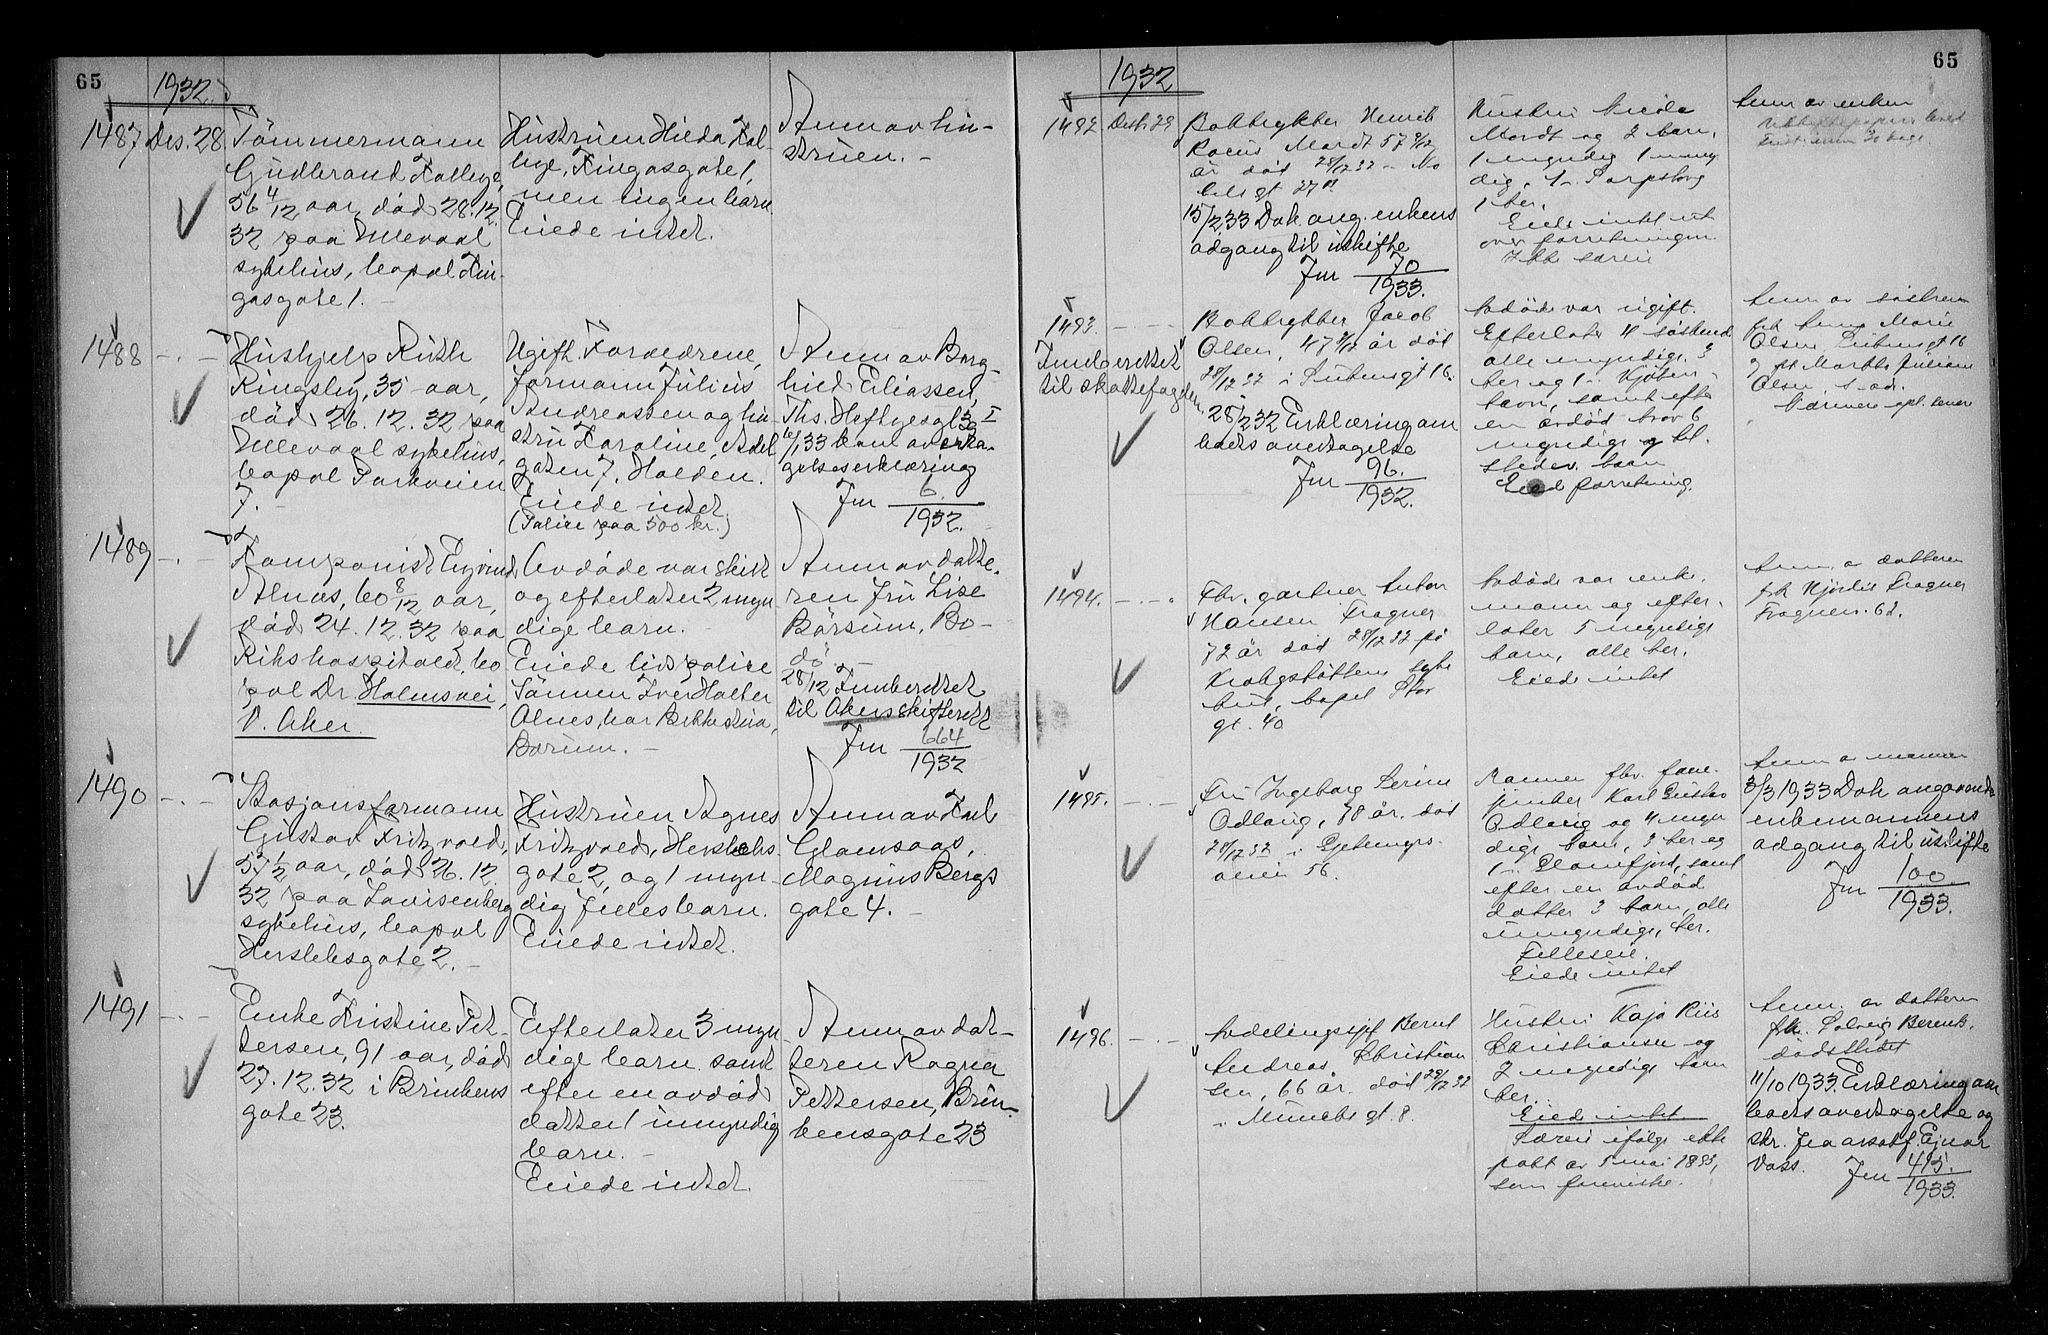 65
1932.
1487 Des. 28
Tömmermann
Gudbrand Kollhye,
56 4/12 aar, död 28.12.
32 paa Ullevaal
sykehus, bopæl Kin-
gosgate 1. –
Hustruen Hilda Kol-
lhye, Kingosgate 1,
men ingen barn.
Eiede intet.
Anm av hu-
struen. –
1488 – . –
Hushjelp Ruth
Ringsby, 35 aar,
död 26.12.32 paa
Ullevaal sykehus,
bopæl Parkveien
7. –
Ugift. Forældrene,
formann Julius
Andreassen og hu-
stru Karoline, Adel
gaten 7, Halden.
Eiede intet.
(Police paa 500 kr.)
Anm av Borg-
hild Eliassen,
Ths. Heftyesgt 39 I
/1 33 Kom av
gelseserklæring
Jnr 6.
1932.
1489 – . –
Komponist Eyvind
Alnæs, 60 8/12 aar,
död 24.12.32 paa
Rikshospitalet, bo
pæl Dr. Holmsvei,
V. Aker.
Avdöde var skilt
og efterlater 2 myn
dige barn.
Eiede livspolice
Sönnen Iver Holter
Alnes, har Bekkestua,
Bærum. –
Anm av datte-
ren Fru Lise
Börsum, Bo-
dö. –
28/12 Innberettet
til Akers skifterett
Jnr 664
1932
1490 – . –
Stasjonsformann
Gustav Fritzvold,
57 1/2 aar, död 26.12
32 paa Lovisenberg
sykehus, bopæl
Herslebsgate 2. –
Hustruen Agnes
Fritzvold, Herslebs
gate 2, og 1 myn
dig felles barn.
Eiede intet.
Anm av Karl
Glomsaas,
Magnus Bergs
gate 4. –
1491 – . –
Enke Kristine Pet-
tersen, 91 aar, död
27.12.32 i Brinkens
gate 23.
Efterlater 3 myn
dige barn samt
efter en avdöd
datter 1 umyndig
barn. –
Eiede intet.
Anm av dat-
teren Ragna
Pettersen, Brin-
kensgate 23
65
1932
1492 Desb. 29
Boktrykker Henrik
Mordt 57 9/12
år död 28/12 32 – No
belsgt 27
15/2 33 Dok ang. enkens
adgang til uskifte
Jnr 70
1933.
Hustru
Mordt og 2 barn,
1 myndig 1 umyn
dig, 1 – Sarpsborg
1 her.
Eiede intet ut
over forretningen.
Ikke særeie
Anm av enken
1493. – . –
Innberettet
til skattefogden
Boktrykker Jacob
Olsen, 47 år död
28/12 32 i gt 16.
28/ 32 Erklæring om
boets overtagelse
Jnr 96.
1932.
Avdöde var ugift.
Efterlater 4 söskende
alle myndige, 3
her og 1 – Kjöben-
havn, samt efter
en avdöd bror 6
myndige og til
stedev. barn
Eiede forretning.
Anm av söstrene
frk Anna Marie
Olsen gt 16
og frk Martha Juliane
Olsen, s. ad.
Nærmere opl. senere
1494. – . –
Fhv. gartner Anton
Hansen Frogner
72 år död 28/12 32 på
Krohgstöttens syke
hus, bopel Stor
gt. 40
Avdöde var enke-
mann og efter-
later 5 myndige
barn, alle her.
Eiede intet
Anm av datteren
frk Hjördis Frogner
Frognerv. 62.
1495. – . –
Fru Ingeborg Serine
Odlaug, 78 år. död
28/12 32 i Gjetemyrs-
veien 56.
Mannen fhv.
Karl Gustav
Odlaug og 4 myn
dige barn, 3 her og
1 – Glomfjord, samt
efter en avdöd
datter 3 barn, alle
umyndige, her.
Felleseie.
Eiede intet
Anm av mannen
3/3 1933 Dok angaaende
enkemannens
adgang til uskifte
Jnr 100
1933.
1496. – . –
Avdelingssjef Bernt
Andreas Christian
sen, 66 år. död 28/12 32
i Munchs gt. 8.
Hustru Kaja Riis
Christiansen og
2 myndige barn
her.
Eiede intet
Særeie ifölge ekte
pakt av 5 mai 1893,
som foreviste.
Anm. av datteren
frk. Solveig
dödsstedet
11/10 1933. Erklæring om
boets overtagelse og
skr. fra o.r.satf. Ejnar
Voss. Jnr 415.
1933.